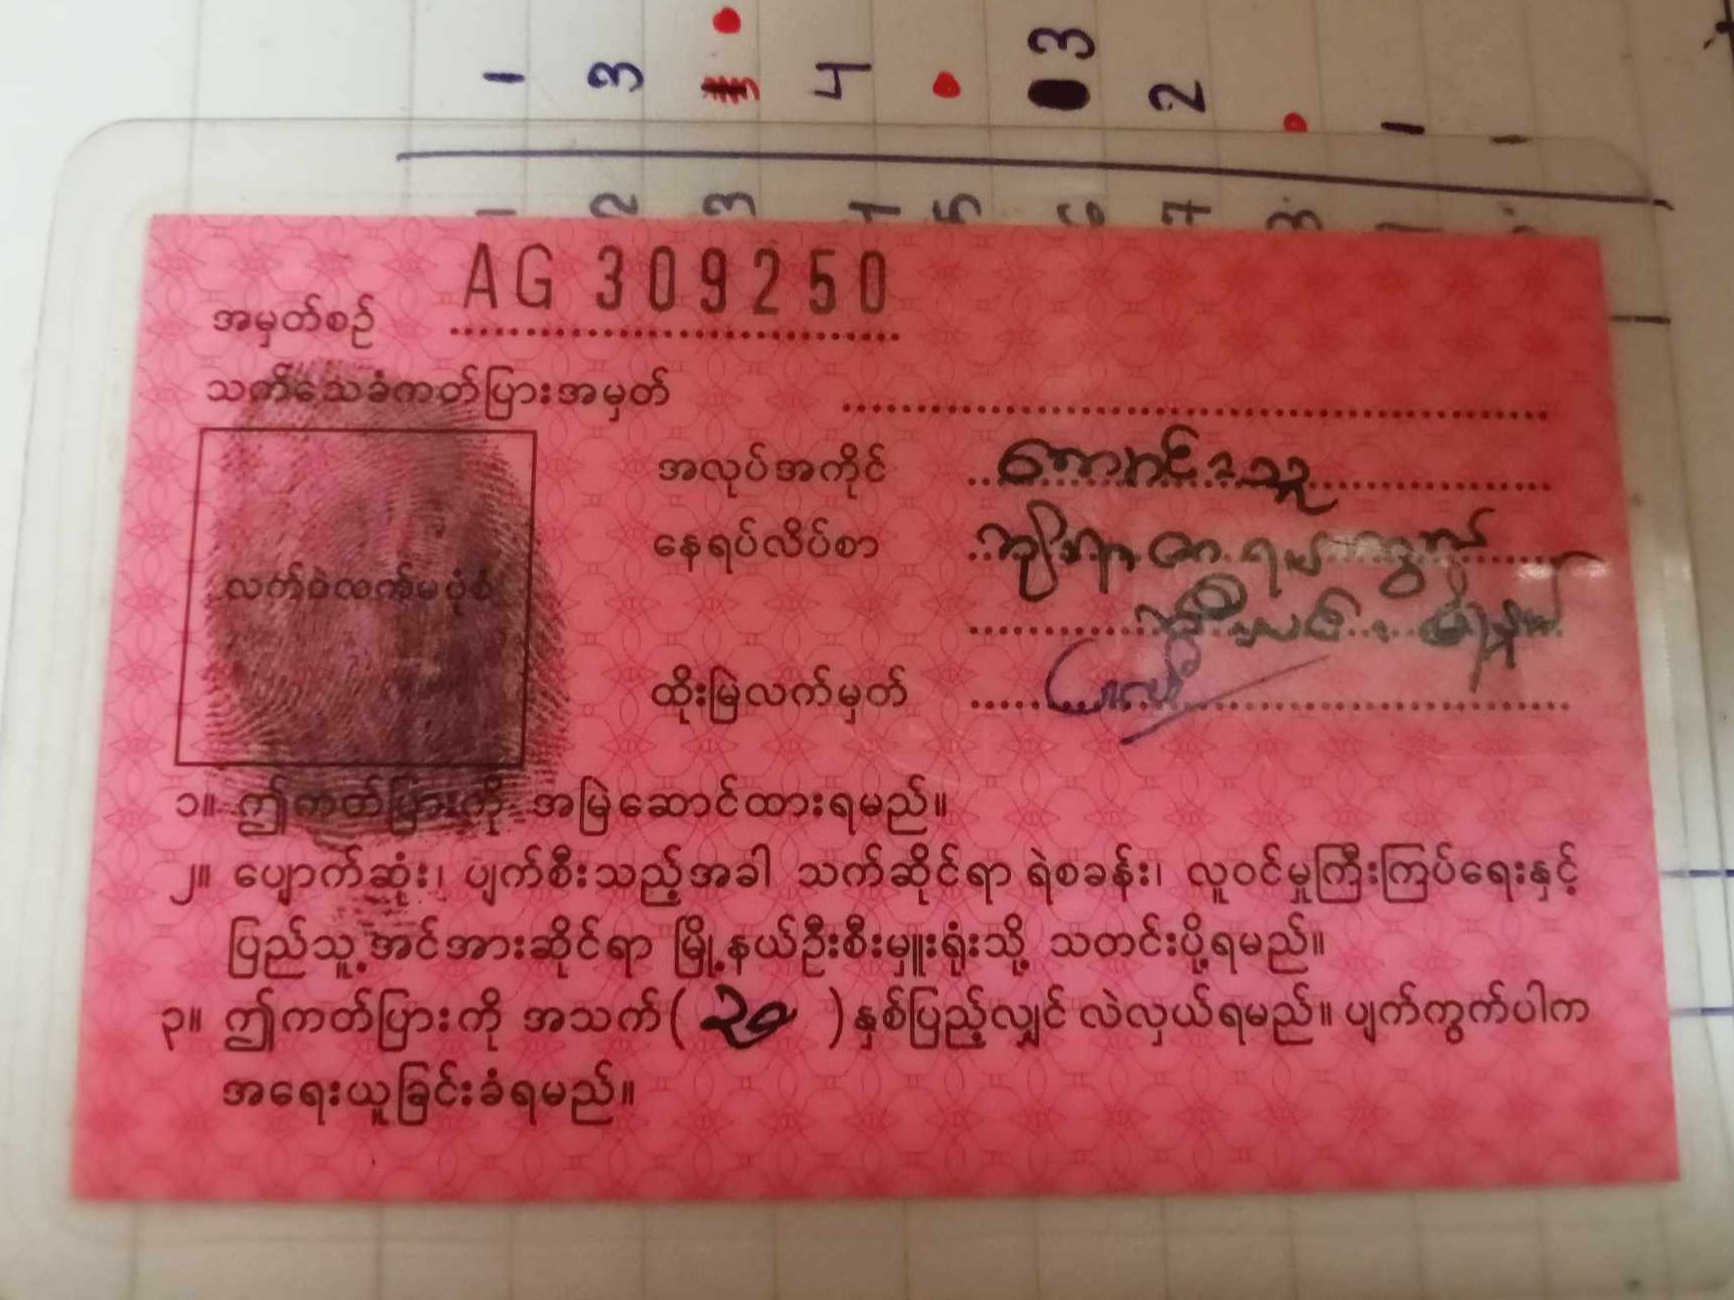 1 3 4 3 2 1 1
1 2 3 4 5 6 7
AG 309250
အမှတ်စဉ်
သက်သေခံကတ်ပြားအမှတ်
အလုပ်အကိုင် ကျောင်းသူ
နေရပ်လိပ်စာ
လက်ဝဲလက်မပုံစံ
ထိုးမြဲလက်မှတ်
၁။ ဤကတ်ပြားကို အမြဲဆောင်ထားရမည်။
၂။ ပျောက်ဆုံး၊ ပျက်စီးသည့်အခါ သက်ဆိုင်ရာ ရဲစခန်း၊ လူဝင်မှုကြီးကြပ်ရေးနှင့်
ပြည်သူ့အင်အားဆိုင်ရာ မြို့နယ်ဦးစီးမှူးရုံးသို့ သတင်းပို့ရမည်။
၃။ ဤကတ်ပြားကို အသက် ( ၃၀ ) နှစ်ပြည့်လျှင် လဲလှယ်ရမည်။ ပျက်ကွက်ပါက
အရေးယူခြင်းခံရမည်။